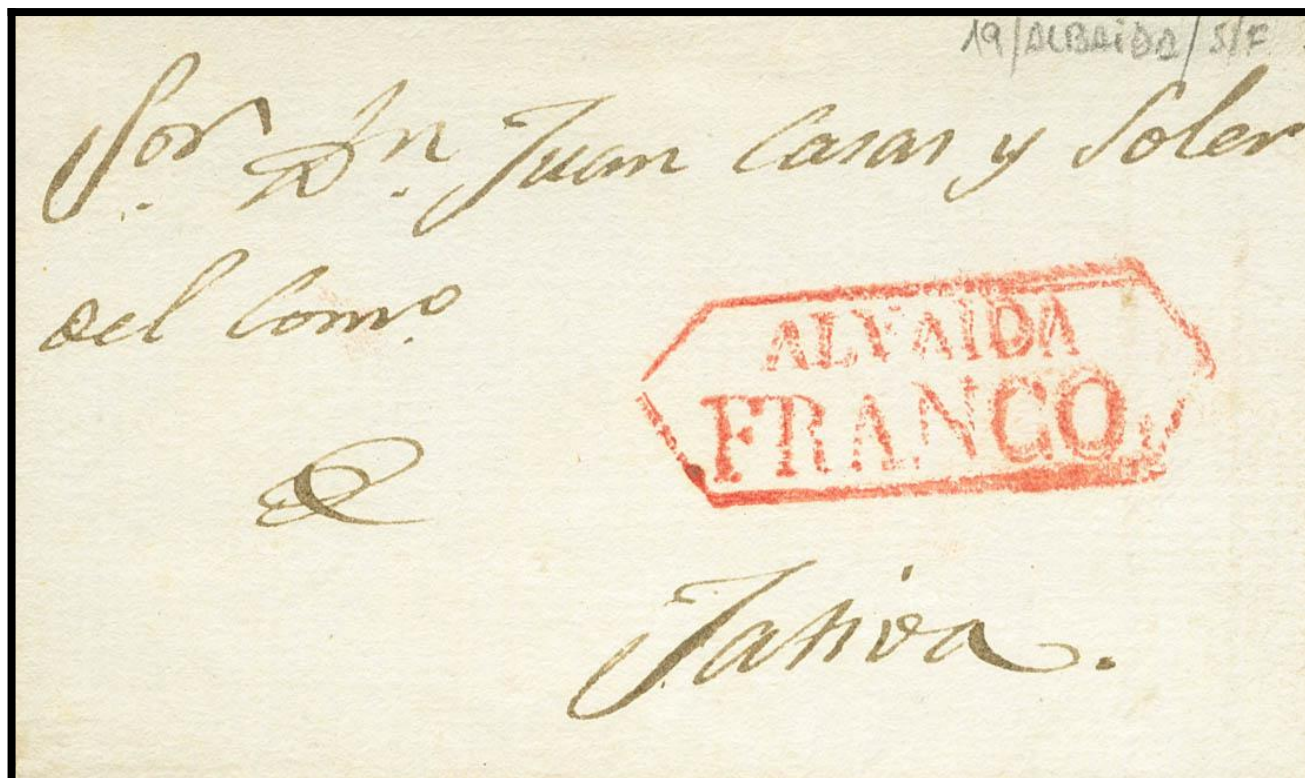 19/ALBAIDA/S/F
Sor. Dn. Juan Casas y Soler
del Comº.
ALVAIDA
FRANCO
Jativa.